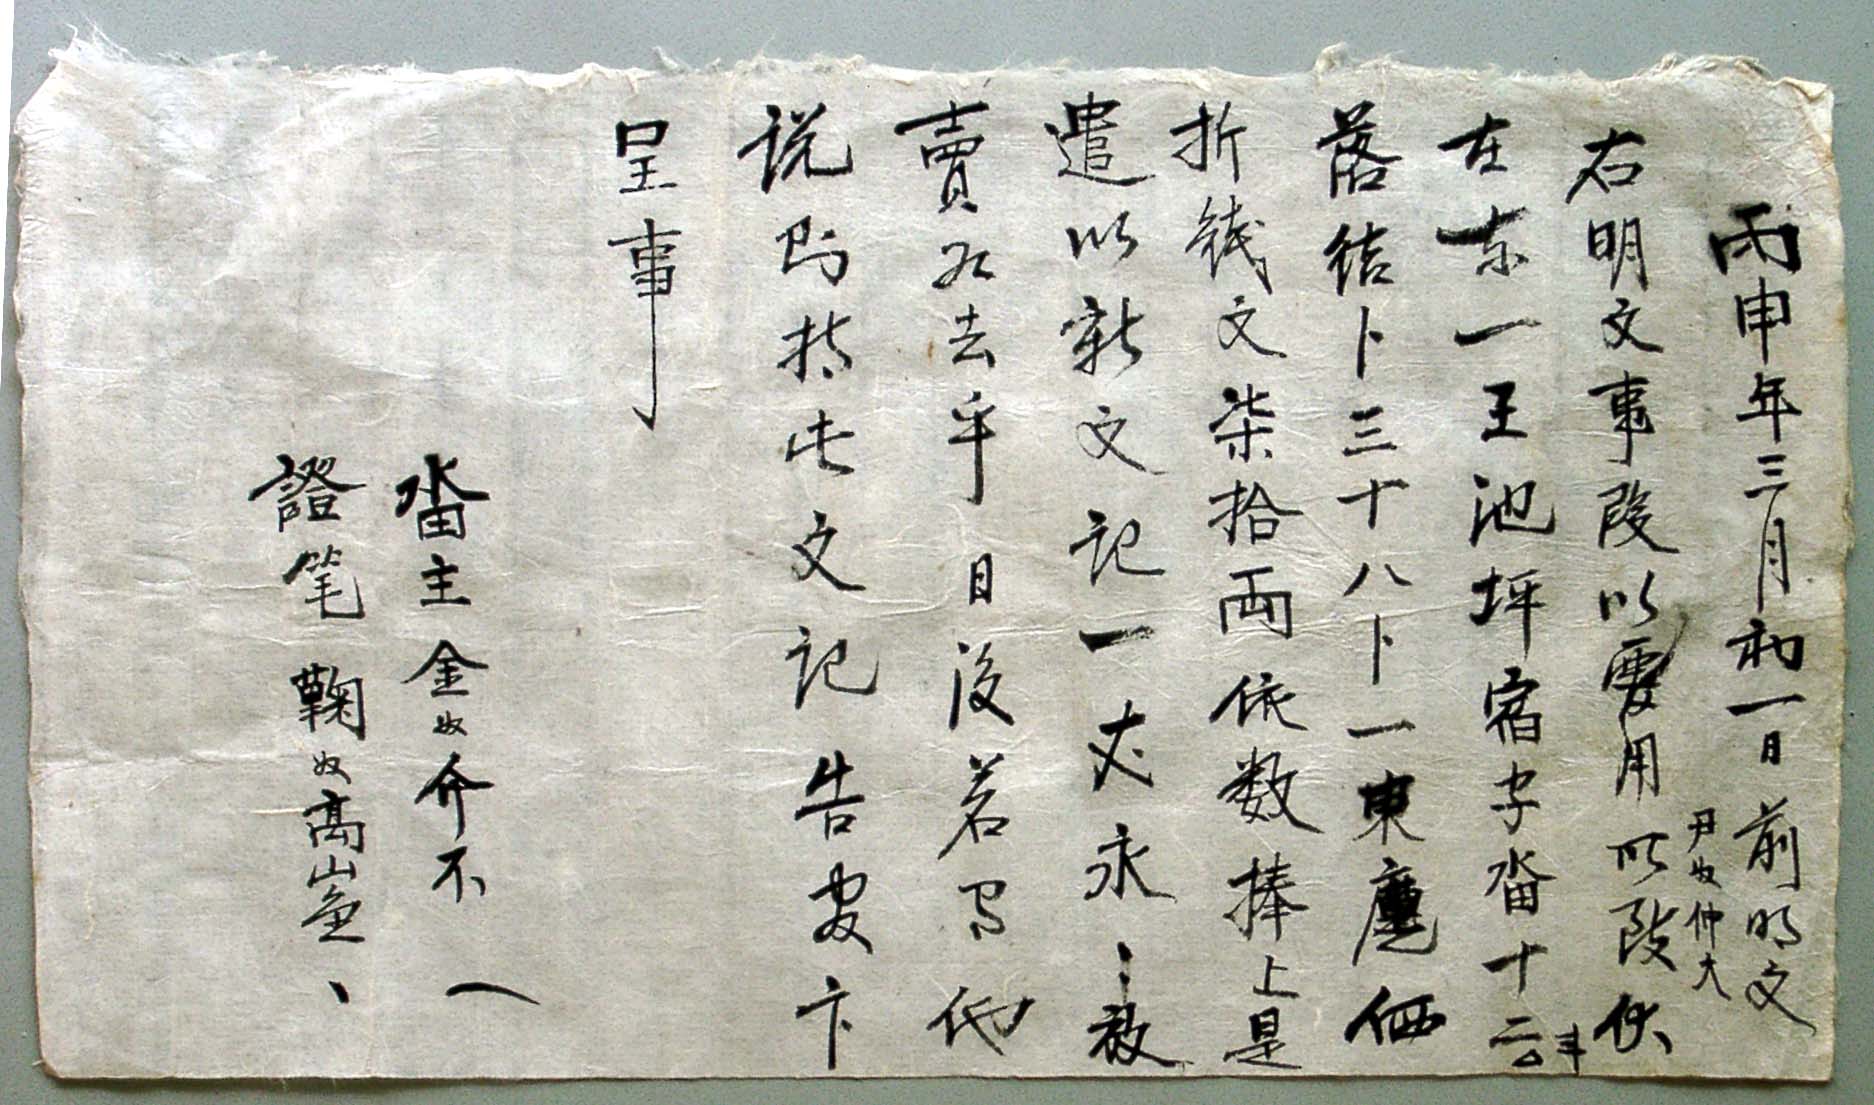 丙申年三月初一日 前明文
尹奴仲大
右明文事段以要用所致伏
在東一王池坪宿字畓十二斗
落結卜三十八卜一束㢱価
折錢文柒拾両依数捧上是
遣以新文記一丈永〻放
賣爲去乎日後若有他
説則持此文記告官卞
呈事
畓主金奴介不
證笔 鞠奴高山金